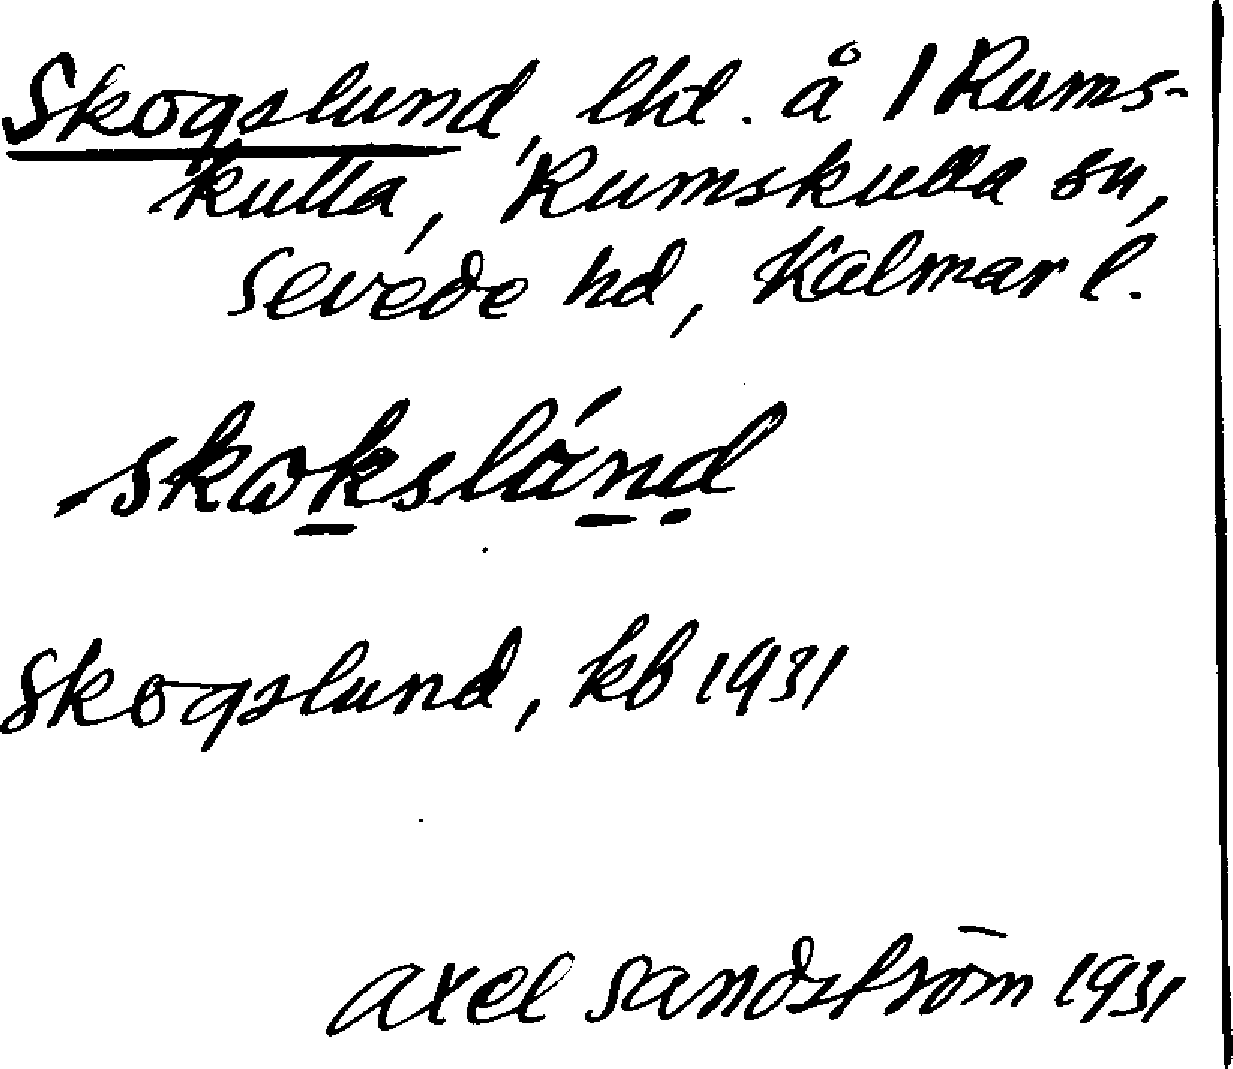 Skogslund, lhl. å 1 Rums-
kulla, Rumskulla sn,
Sevede hd, Kalmar l.
skωkslánd
Skogslund, kb 1931
Axel Sandström 1931